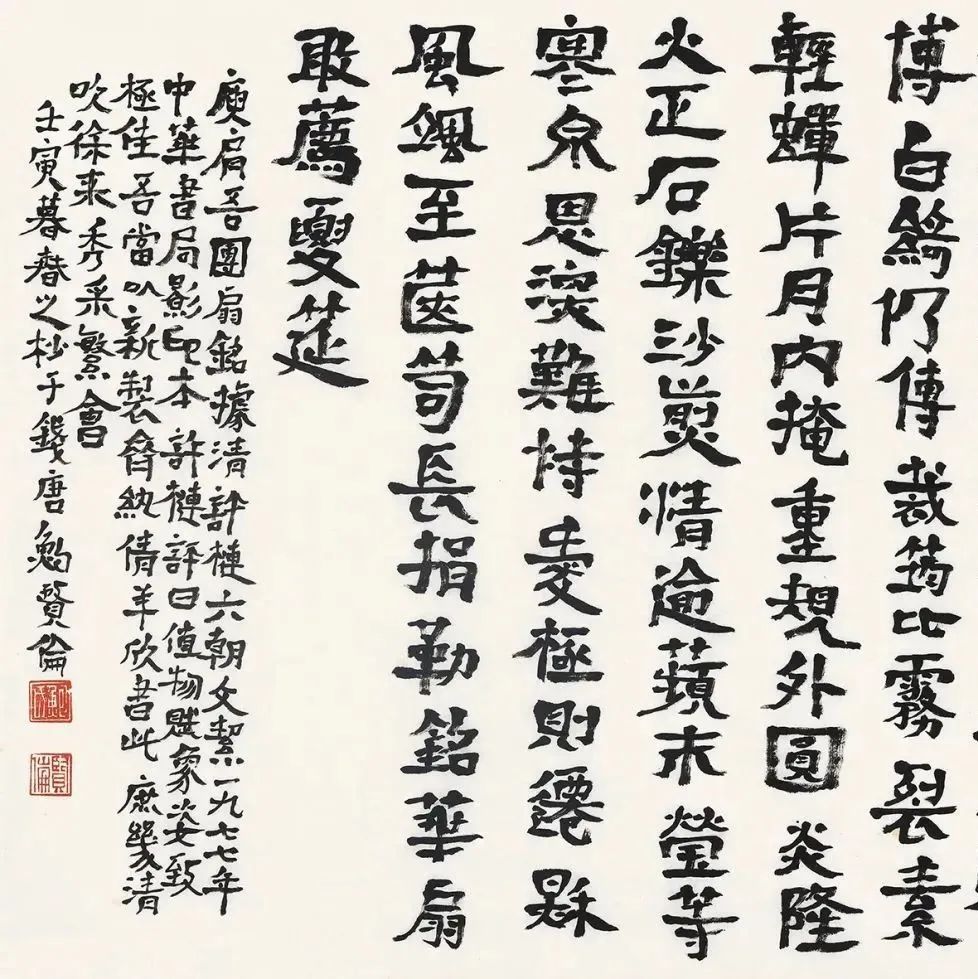 博白綺仍傳裁筠比霧裂素
輕蟬片月内掩重規外圓炎隆
火正石鑠沙煎清逾蘋末瑩等
寒泉恩深難恃愛極則遷秋
風颯至篋笥長捐勒銘華扇
敢薦夏筵
庾肩吾團扇銘據清許槤六朝文絜一九七七年
中華書局影印本許槤評曰值物賦象姿致
極佳吾當以新製齊紈倩羊欣書此庶幾清
吹徐來秀采繁會
壬寅暮春之杪于錢唐鮑賢倫
賢倫